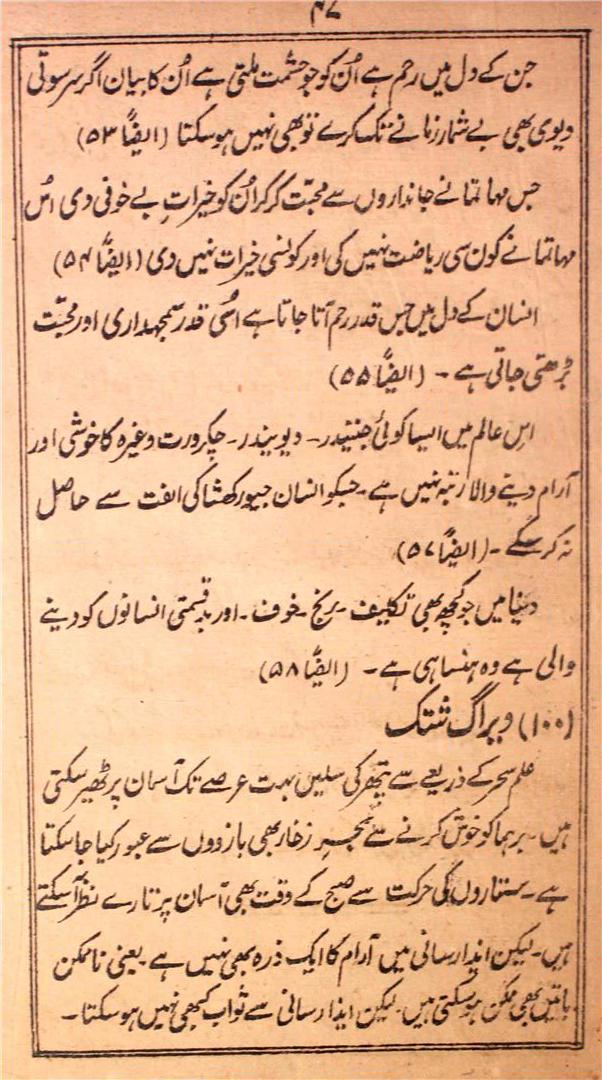 ۴۷
جن کے دل میں رحم ہے اُن کو جو حشمت ملتی ہے اُن کا بیان اگر سرسوتی
دیوی بھی بے شمار زمانے تک کرے تو بھی نہیں ہو سکتا (ایضاً ۵۳)
جس مہاتما نے جانداروں سے محبّت کر کر اُن کو خیراتِ بے خوفی دی اُس
مہاتما نے کون سی ریاضت نہیں کی اور کونسی خیرات نہیں دی (ایضاً ۵۴)
انسان کے دل میں جس قدر رحم آتا جاتا ہے اُسی قدر سمجھداری اور محبّت
بڑھتی جاتی ہے ۔ (ایضاً ۵۵)
اس عالم میں ایسا کوئی جنیندر ۔ دیویندر ۔ چکرورت وغیرہ کا خوشی اور
آرام دینے والا رتبہ نہیں ہے ۔ جسکو انسان جیورکھشا کی الفت سے حاصل
نہ کر سکے ۔ (ایضاً ۵۷)
دنیا میں جو کچھ بھی تکلیف ۔ رنج ۔ خوف ۔ اور بدقسمتی انسانوں کو دینے
والی ہے وہ ہنسا ہی ہے ۔ (ایضاً ۵۸)
(۱۰۰) ویراگ شتک
علم سحر کے ذریعے سے پتھر کی سلیں بہت عرصے تک آسمان پر ٹھیر سکتی
ہیں ۔ برہما کو خوش کرنے سے بحرِ زخار بھی بازووں سے عبور کیا جا سکتا
ہے ۔ ستاروں کی حرکت سے صبح کے وقت بھی آسمان پر تارے نظر آ سکتے
ہیں ۔ لیکن ایذا رسانی میں آرام کا ایک ذرہ بھی نہیں ہے ۔ یعنی ناممکن
باتیں بھی ممکن ہو سکتی ہیں ۔ لیکن ایذا رسانی سے ثواب کبھی نہیں ہو سکتا ۔